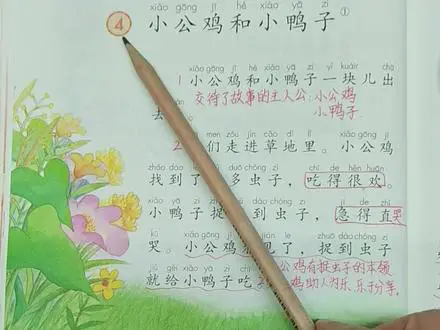 xiǎo gōng jī hé xiǎo yā zi
4 小公鸡和小鸭子①
xiǎo gōng jī hé xiǎo yā zi yí kuàir chū
1 小公鸡和小鸭子一块儿出
交待了故事的主人公:小公鸡
小鸭子
去
men zǒu jìn cǎo dì lǐ xiǎo gōng jī
2 们走进草地里。小公鸡
zhǎo dào le duō chóng zi chī de hěn huān
找到了 多虫子,吃得很欢。
xiǎo yā zi zhuō dào chóng zi jí de zhí
小鸭子捉 到虫子,急得直哭
kū xiǎo gōng jī jiàn le zhuō dào chóng zi
哭。小公鸡 见了,捉到虫子
公鸡有捉虫子的本领
jiù gěi xiǎo yā zi
就给小鸭子吃
鸡助人为乐、乐于分享。